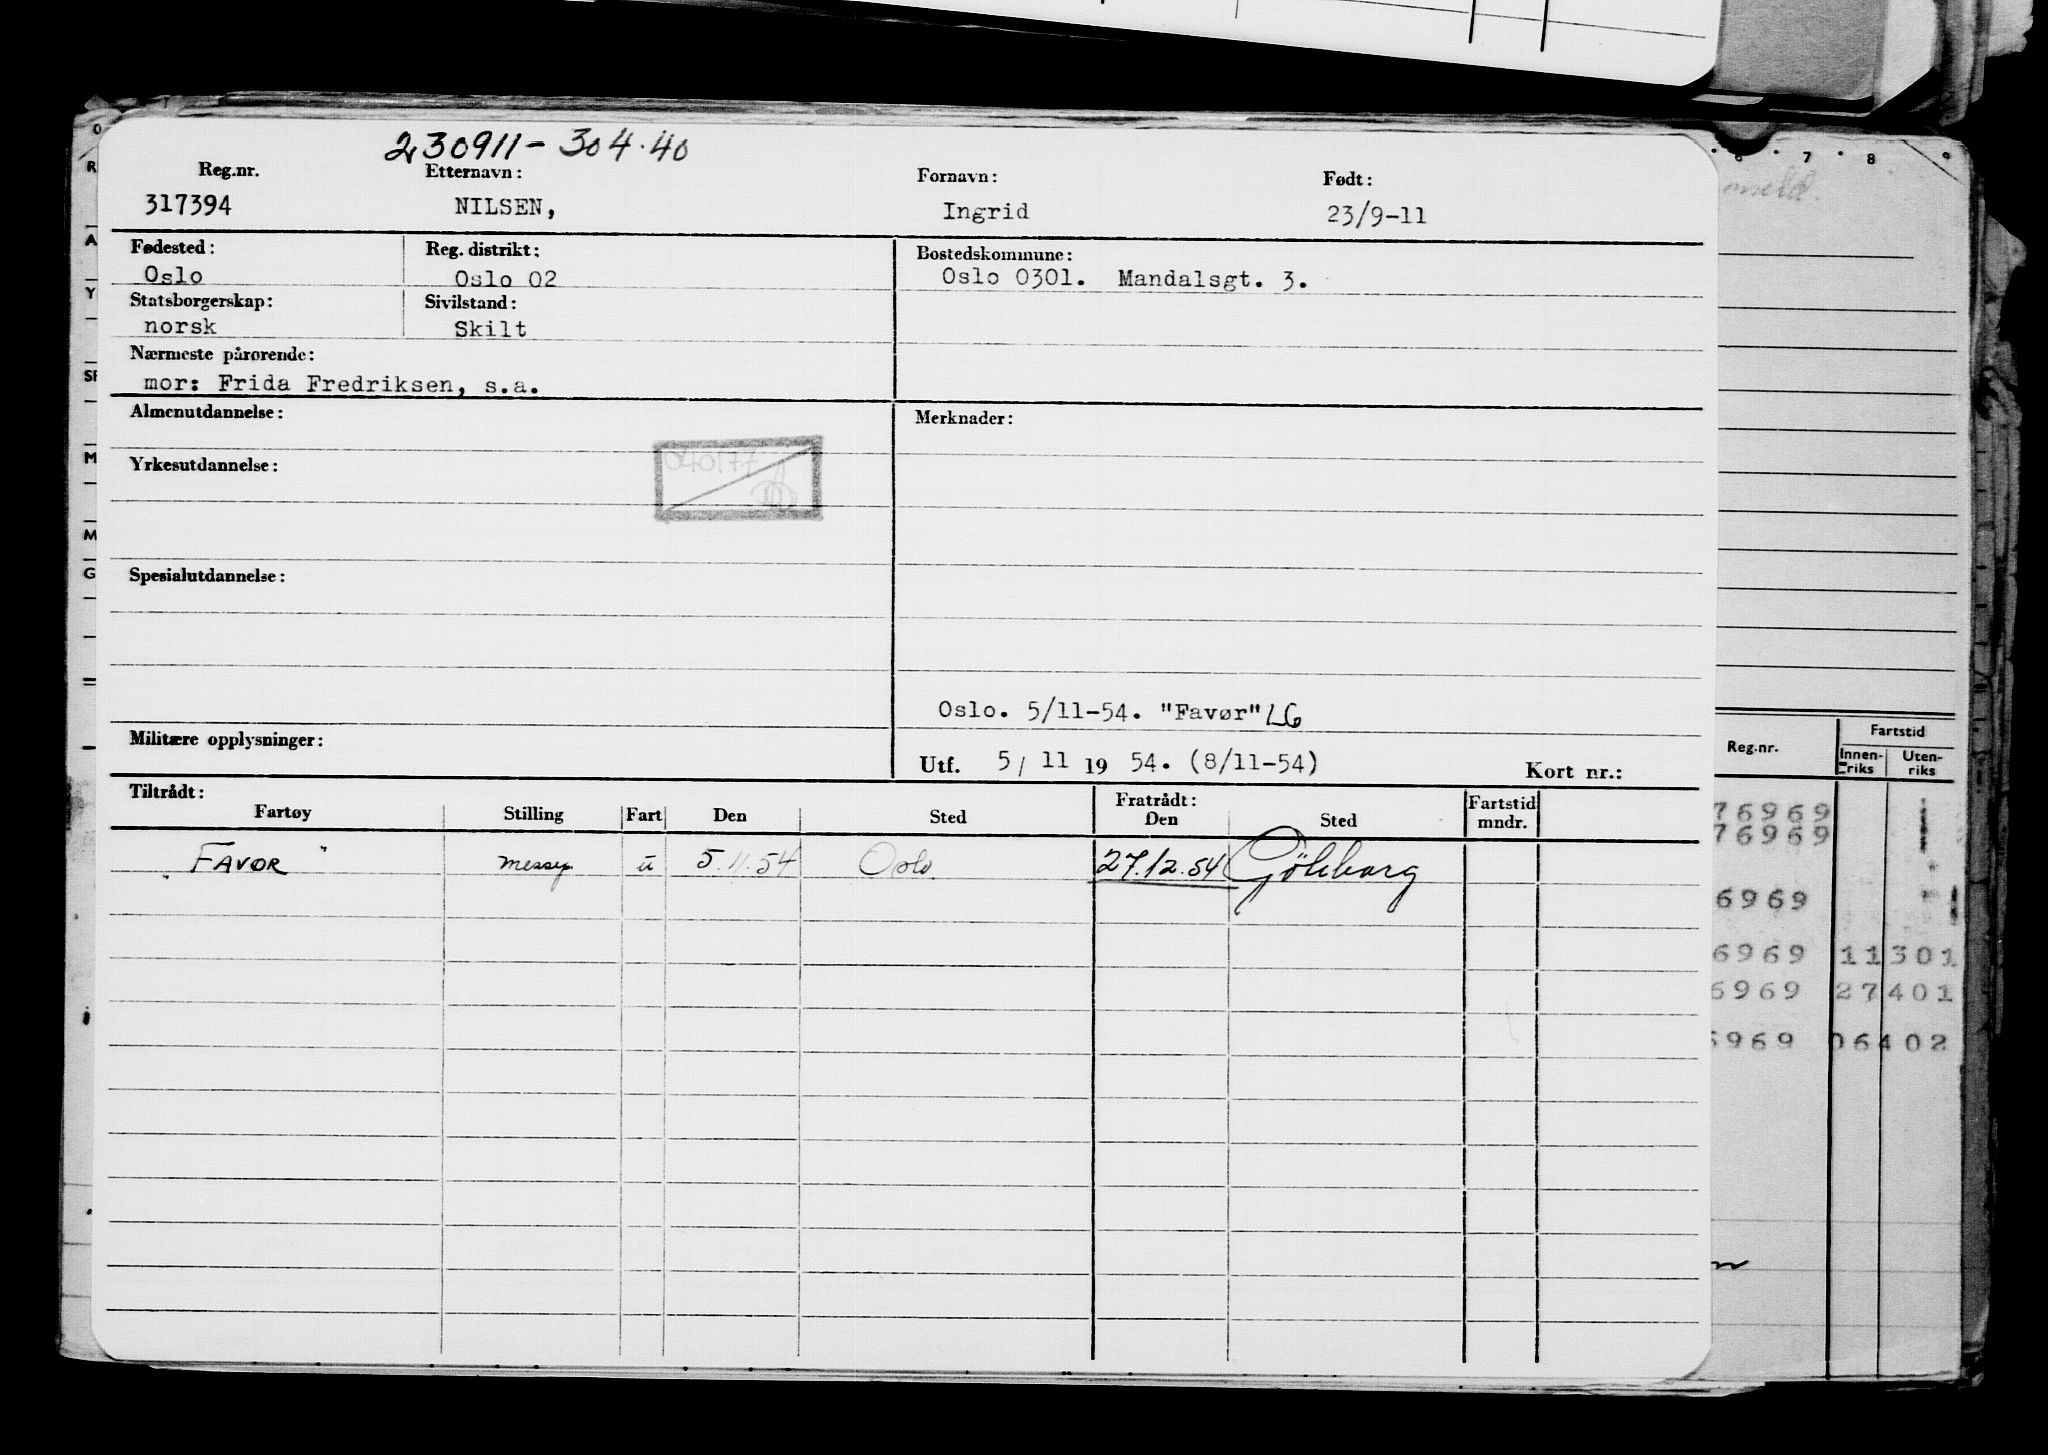 230911-304.40
Reg.nr. Etternavn: Fornavn: Født:
317394 NILSEN, Ingrid 23/9-11
Fødested: Reg. distrikt: Bostedskommune:
Oslo Oslo 02 Oslo 0301. Mandalsgt. 3.
Statsborgerskap: Sivilstand:
norsk Skilt
Nærmeste pårørende:
mor: Frida Fredriksen, s.a.
Almenutdannelse: Merknader:
040177
Yrkesutdannelse:
Spesialutdannelse:
Oslo. 5/11-54. "Favør" LG
Militære opplysninger:
Utf. 5/ 11 19 54. (8/11-54) Kort nr.:
Tiltrådt: Fratrådt: Fartstid
Fartøy Stilling Fart Den Sted Den Sted mndr.
"FAVØR" messep. u 5.11.54 Oslo 27.12.54 Göteborg
6 7 8 9
Reg.nr. Fartstid
Innen-riks Uten-riks
76969
76969
6969
6969 11 301
6969 27 401
6969 06 402
O
R
A
Y
M
M
G